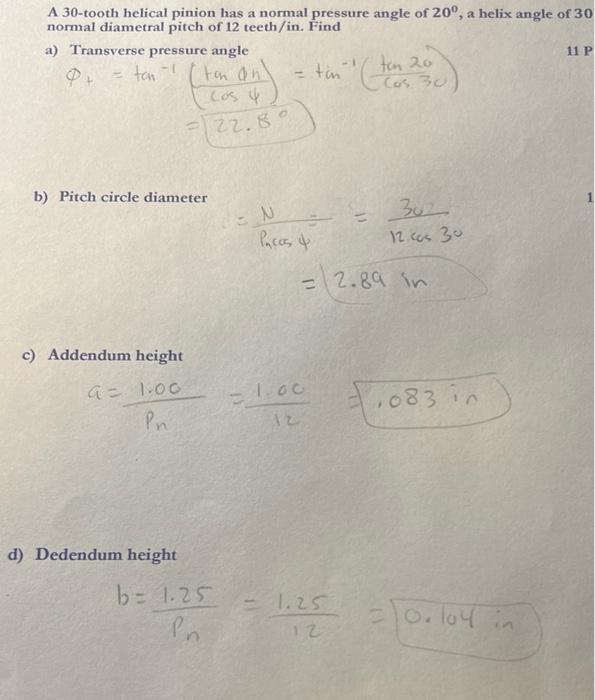 A 30-tooth helical pinion has a normal pressure angle of 20⁰, a helix angle of 30
normal diametral pitch of 12 teeth/in. Find
a) Transverse pressure angle 11 P
φt = tan⁻¹ (tan φn / cos ψ) = tan⁻¹ (tan 20 / cos 30)
= 22.8°
b) Pitch circle diameter 1
= N / Pn cos ψ = = 30 / 12 cos 30
= 2.89 in
c) Addendum height
a = 1.00 / Pn = 1.00 / 12 = .083 in
d) Dedendum height
b = 1.25 / Pn = 1.25 / 12 = 0.104 in